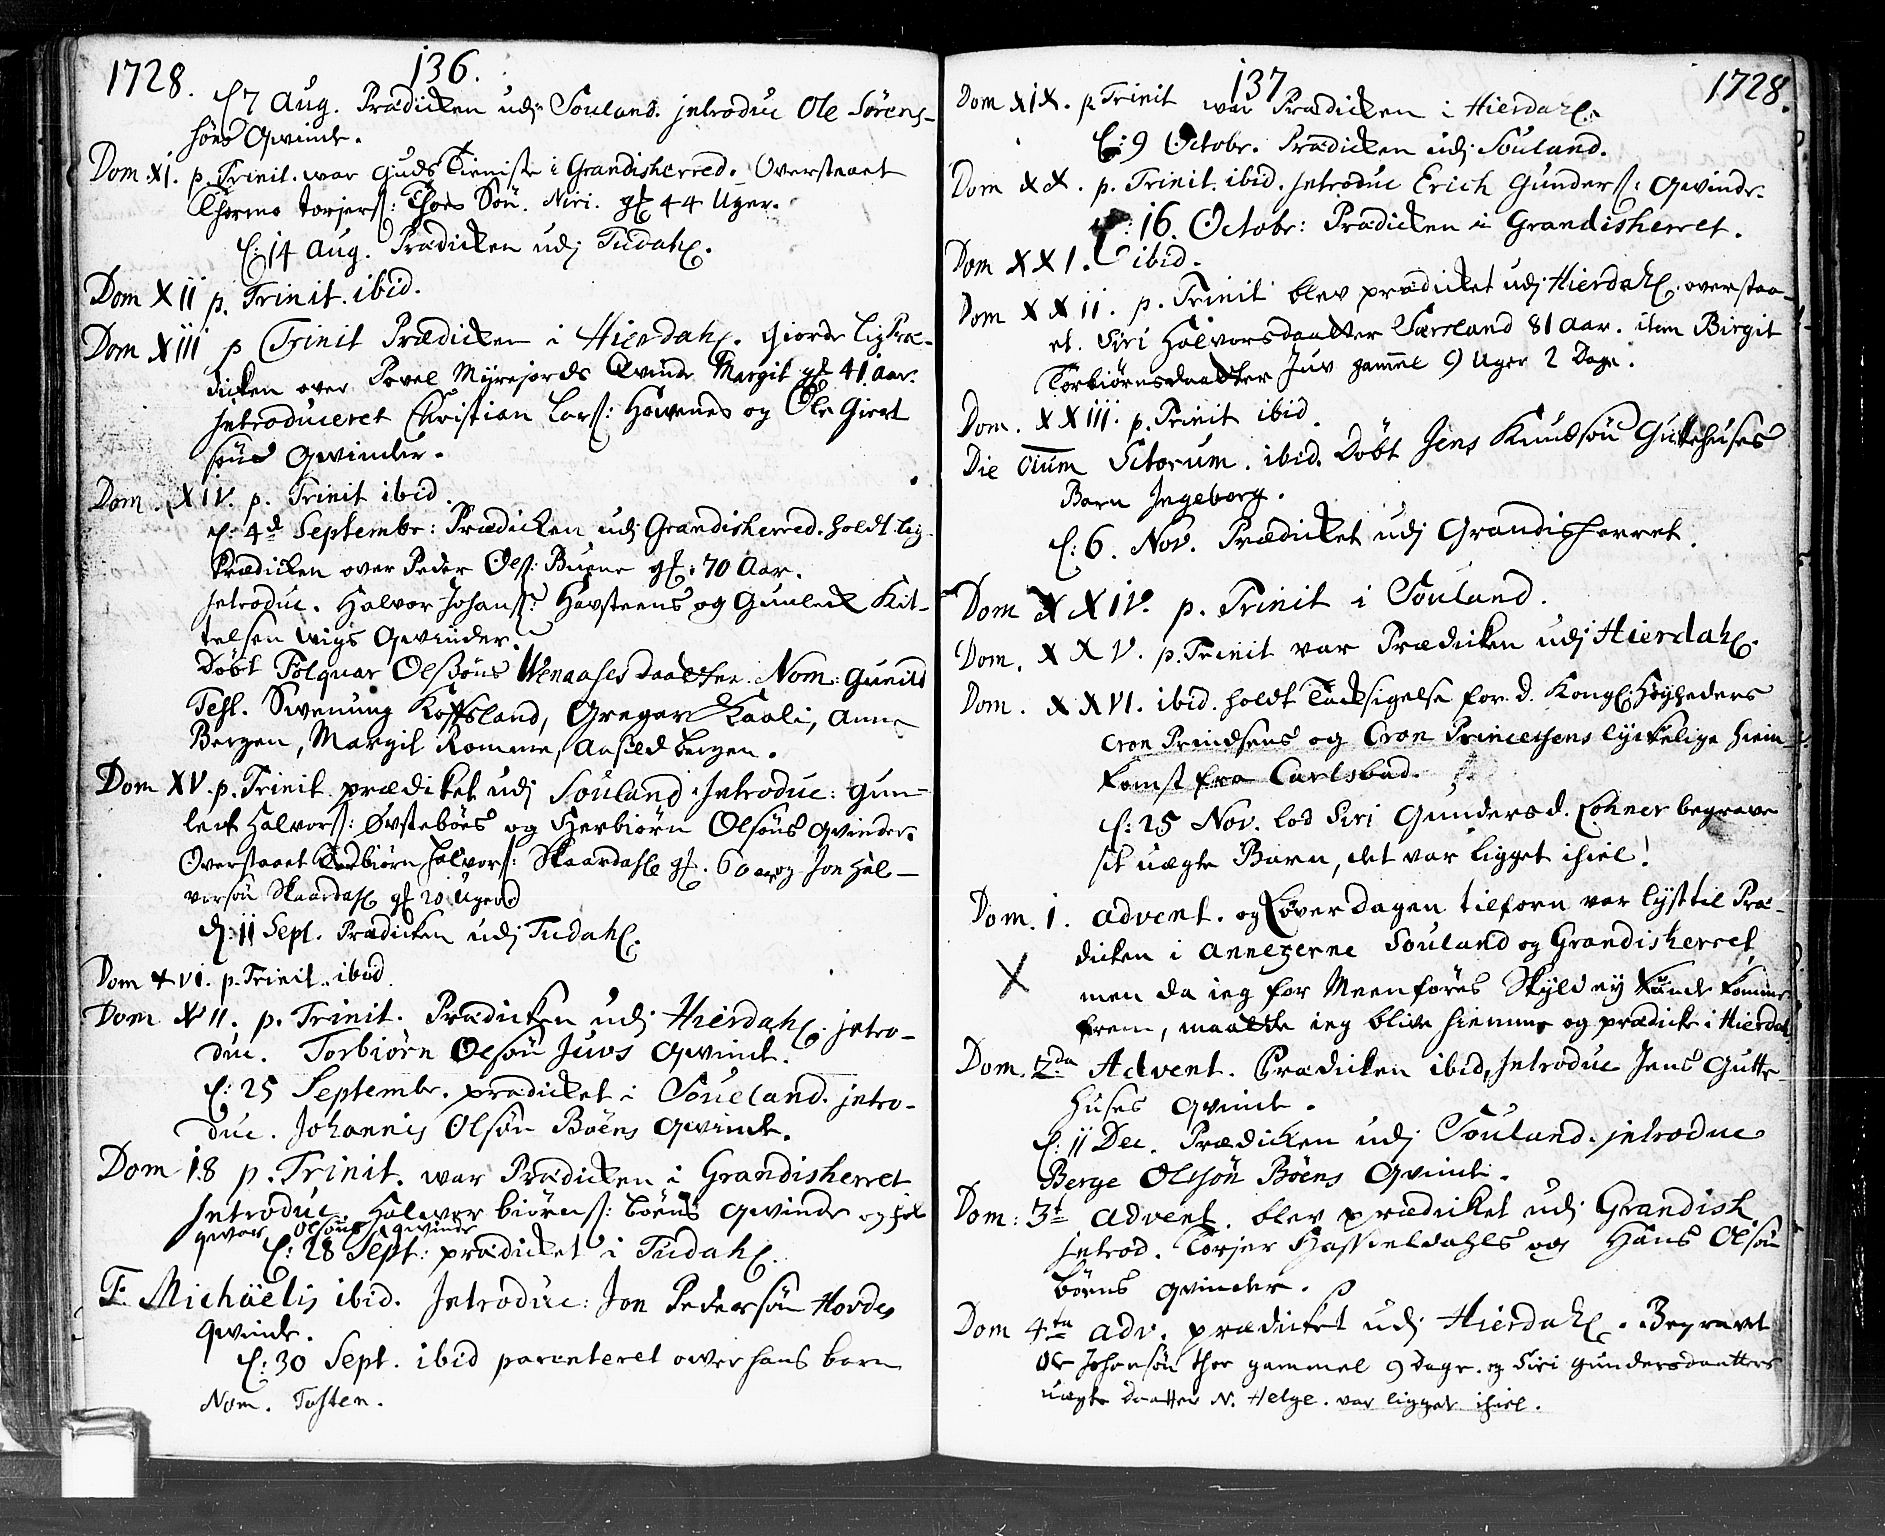 1728. 136.
d: 7 Aug. Prædicken udj Souland. jntroduc Ole Sörens-
söns Qvinde.
Dom. XI. p. Trinit. war Guds Tieniste i Grandisherred. Overstaaet
Thormo torjerss: Söu. Niri. gl 44 Uger.
d: 14 Aug. Prædicken udj Tudahl.
Dom XII p. Trinit. ibid.
Dom XIII p Trinit Prædicken i Hierdahl. Giorde ligPræ-
dicken over Povel Myrejords Qvinde Margit gl 41 Aar.
Jntroduceret Christian Larss: Howenes og Ole Giert
söns Qvinder.
Dom. XIV. p. Trinit ibid.
d: 4de Septembr: Prædicken udj Grandisherred. holdt lig-
Prædicken over Peder Olss: Buene gl: 70 Aar.
Jntroduc. Halvor Johanss: Havsteens og Gunleik Kit-
telsen wigs Qvinder.
Döbt Folquar Olssöns Wenaases daatter. Nom: Gunild
Test. Swenung Kossland, Gregar Kaali, Anne
Bergen, Margit Romme, Aasild bergen.
Dom XV. p. Trinit. prædiket udj Souland. Jntroduc: Gun-
leik Halvorss: Øvsteböes og Herbiörn Olsöns Qvinder.
Overstaaet Torbiörn halvorss: Skaardahl gl. 60 aar og Jon Hal-
vorsön Skaardahl gl 20 Uger.
d: 11 Sept. Prædicken udj Tudahl.
Dom XVI. p. Trinit. ibid.
Dom XVII. p. Trinit. Prædicken udj Hierdahl. jntro-
duc. Torbiörn Olsön Juvs Qvinde.
d: 25 Septembr. prædicket i Souland. jntro-
duc. Johannis Olsön Böens Qvinde.
Dom 18 p. Trinit. war Prædicken i Grandisherret
Jntroduc. Halvor biörnss: böens Qvinde og fol
qwar Olsöns qwinde
d: 28 Sept: prædicket i Tudahl.
F. Michäelis ibid. Jntroduc: Jon Pedersön Hovdes
Qvinde.
d: 30 Sept. ibid parenteret ower hans barn
Nom. Tosten.
137 1728.
Dom XIX. p. Trinit war Prædicken i Hierdahl.
d: 9 Octobr. Prædicken udj Souland.
Dom XX. p. Trinit. ibid. Jntroduc Erich Gunderss: Qvinde.
d: 16. Octobr: Prædicken i Grandisherret.
Dom XXI. ibid.
Dom XXII. p. Trinit blev prædicket udj Hierdahl. overstaa-
et. Siri Halvorsdaatter Særsland 81 Aar. item Birgit
Torbiörnsdaatter Juv gammel 9 Uger 2 Dage.
Dom. XXIII. p. Trinit ibid.
Die Oium Sctorum. ibid. Döbt Jens Knudsön Guttehuses
Barn Jngeborg.
d: 6. Nov. Prædicket udj Grandisherret.
Dom XXIV. p. Trinit i Souland.
Dom. XXV. p. Trinit var Prædicken udj Hierdahl.
Dom. XXVI. ibid. holdt Tacksigelse for d. Kongl: Höyheders
Cron Prindsens og Cron Princessens lyckelige hiem-
komst fra Carlsbad.
d: 25 Nov. lod Siri Gundersd. Lohner begrave
sit uægte Barn, det var ligget ihiel!
Dom. 1. Advent. og Löverdagen tilforn var lyst til Præ-
dicken i Annexerne Souland og Grandisherret,
X men da jeg for Meenföres Skyld ey kunde komme
frem, maatte jeg blive hiemme og prædicke i Hierdal
Dom. 2da Advent. Prædicken ibid, Jntroduc Jens Gutte-
huses Qvinde.
d: 11 Dec. Prædicken udj Souland. jntroduc
Berge Olssön Böens Qvinde.
Dom: 3t Advent. blev prædicket udj Grandish.
Jntrod. Torjer Hasseldahls og Hans Olsön
böens Qvinder.
Dom 4ta Adv. prædicket udj Hierdahl. Begravet
Ole Johansön thor gammel 9 Dage. og Siri Gundersdaatters
uægte daatter N. Helge. var ligget ihiel.